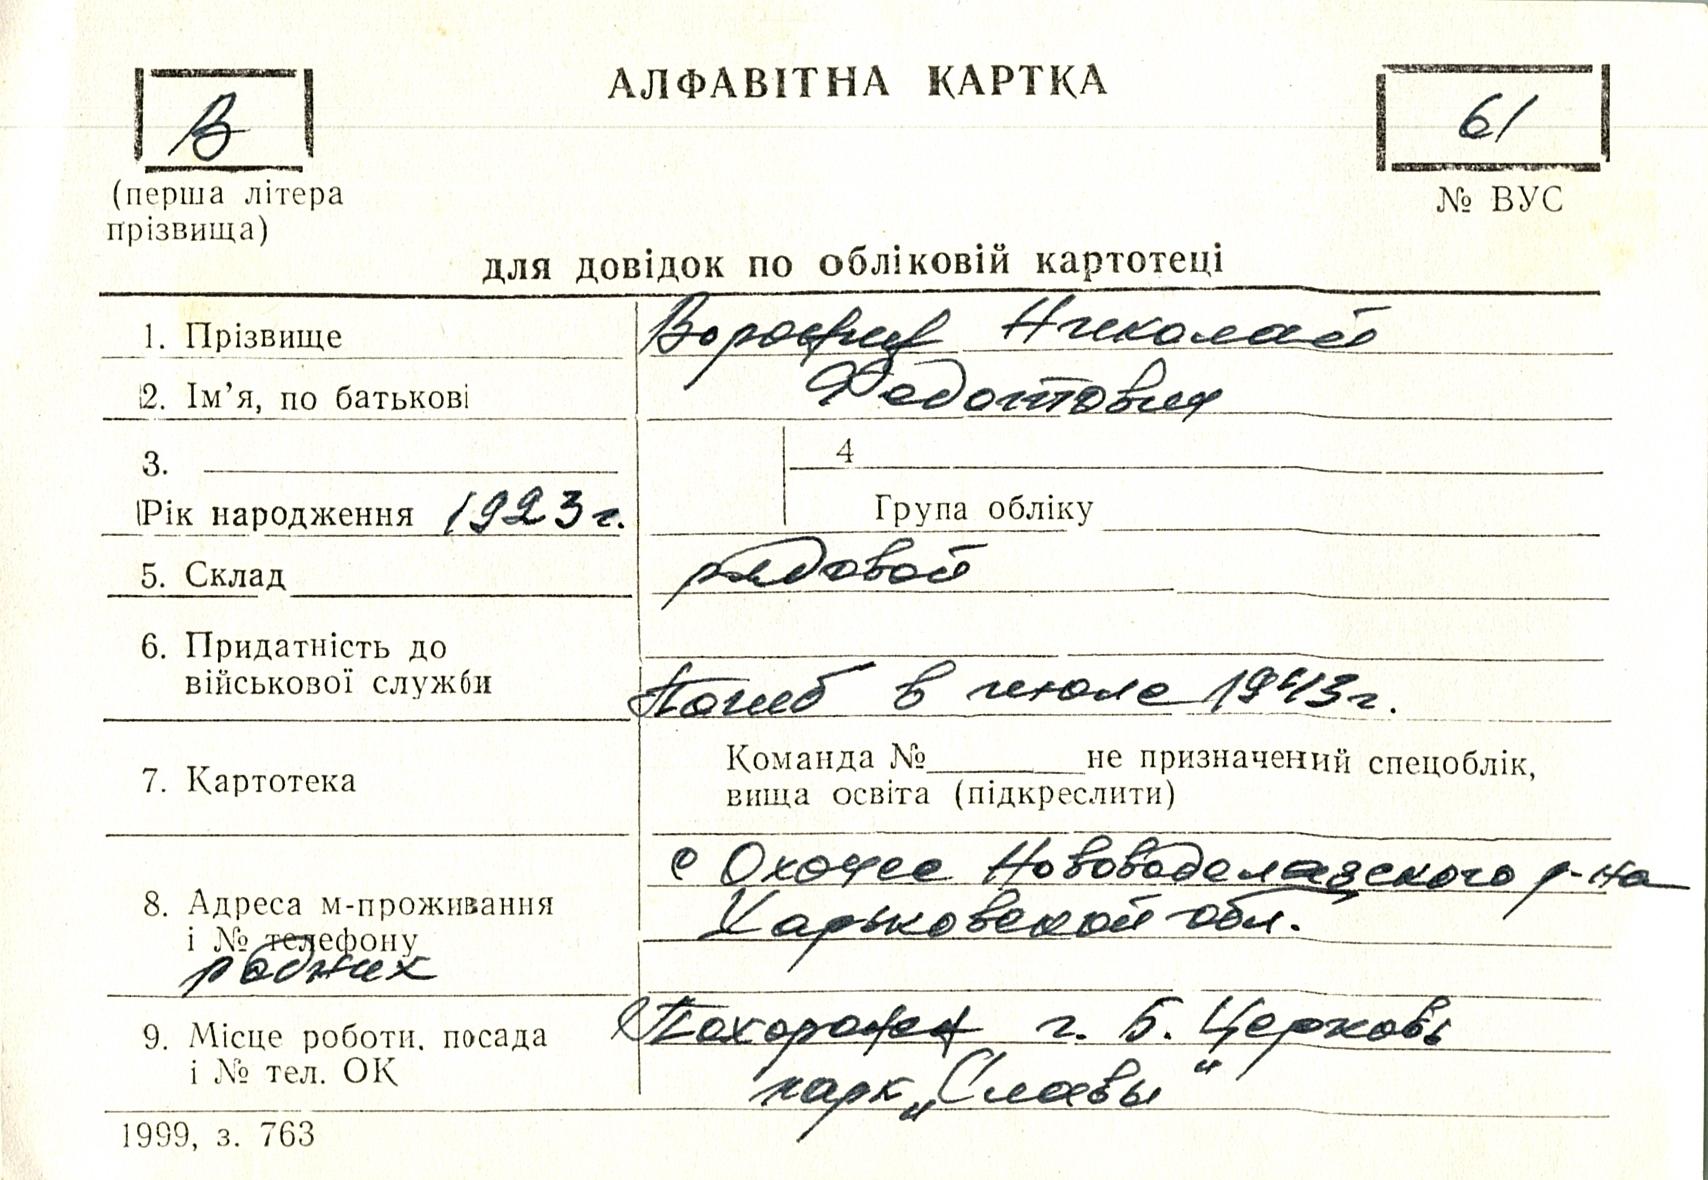 АЛФАВІТНА КАРТКА
В
61
(перша літера
прізвища)
№ ВУС
для довідок по обліковій картотеці
1. Прізвище Николай
2. Ім’я, по батькові Федотович
3. 4
Рік народження 1923 г. Група обліку
5. Склад рядовой
6. Придатність до
військової служби Погиб в июле 1943 г.
7. Картотека Команда № не призначений спецоблік,
вища освіта (підкреслити)
с Охочее Нововодолазского р-на
8. Адреса м-проживання Харьковской обл.
і № телефону
родных
9. Місце роботи, посада Похоронен г. Б. Церковь
і № тел. ОК парк „Славы"
1999, з. 763